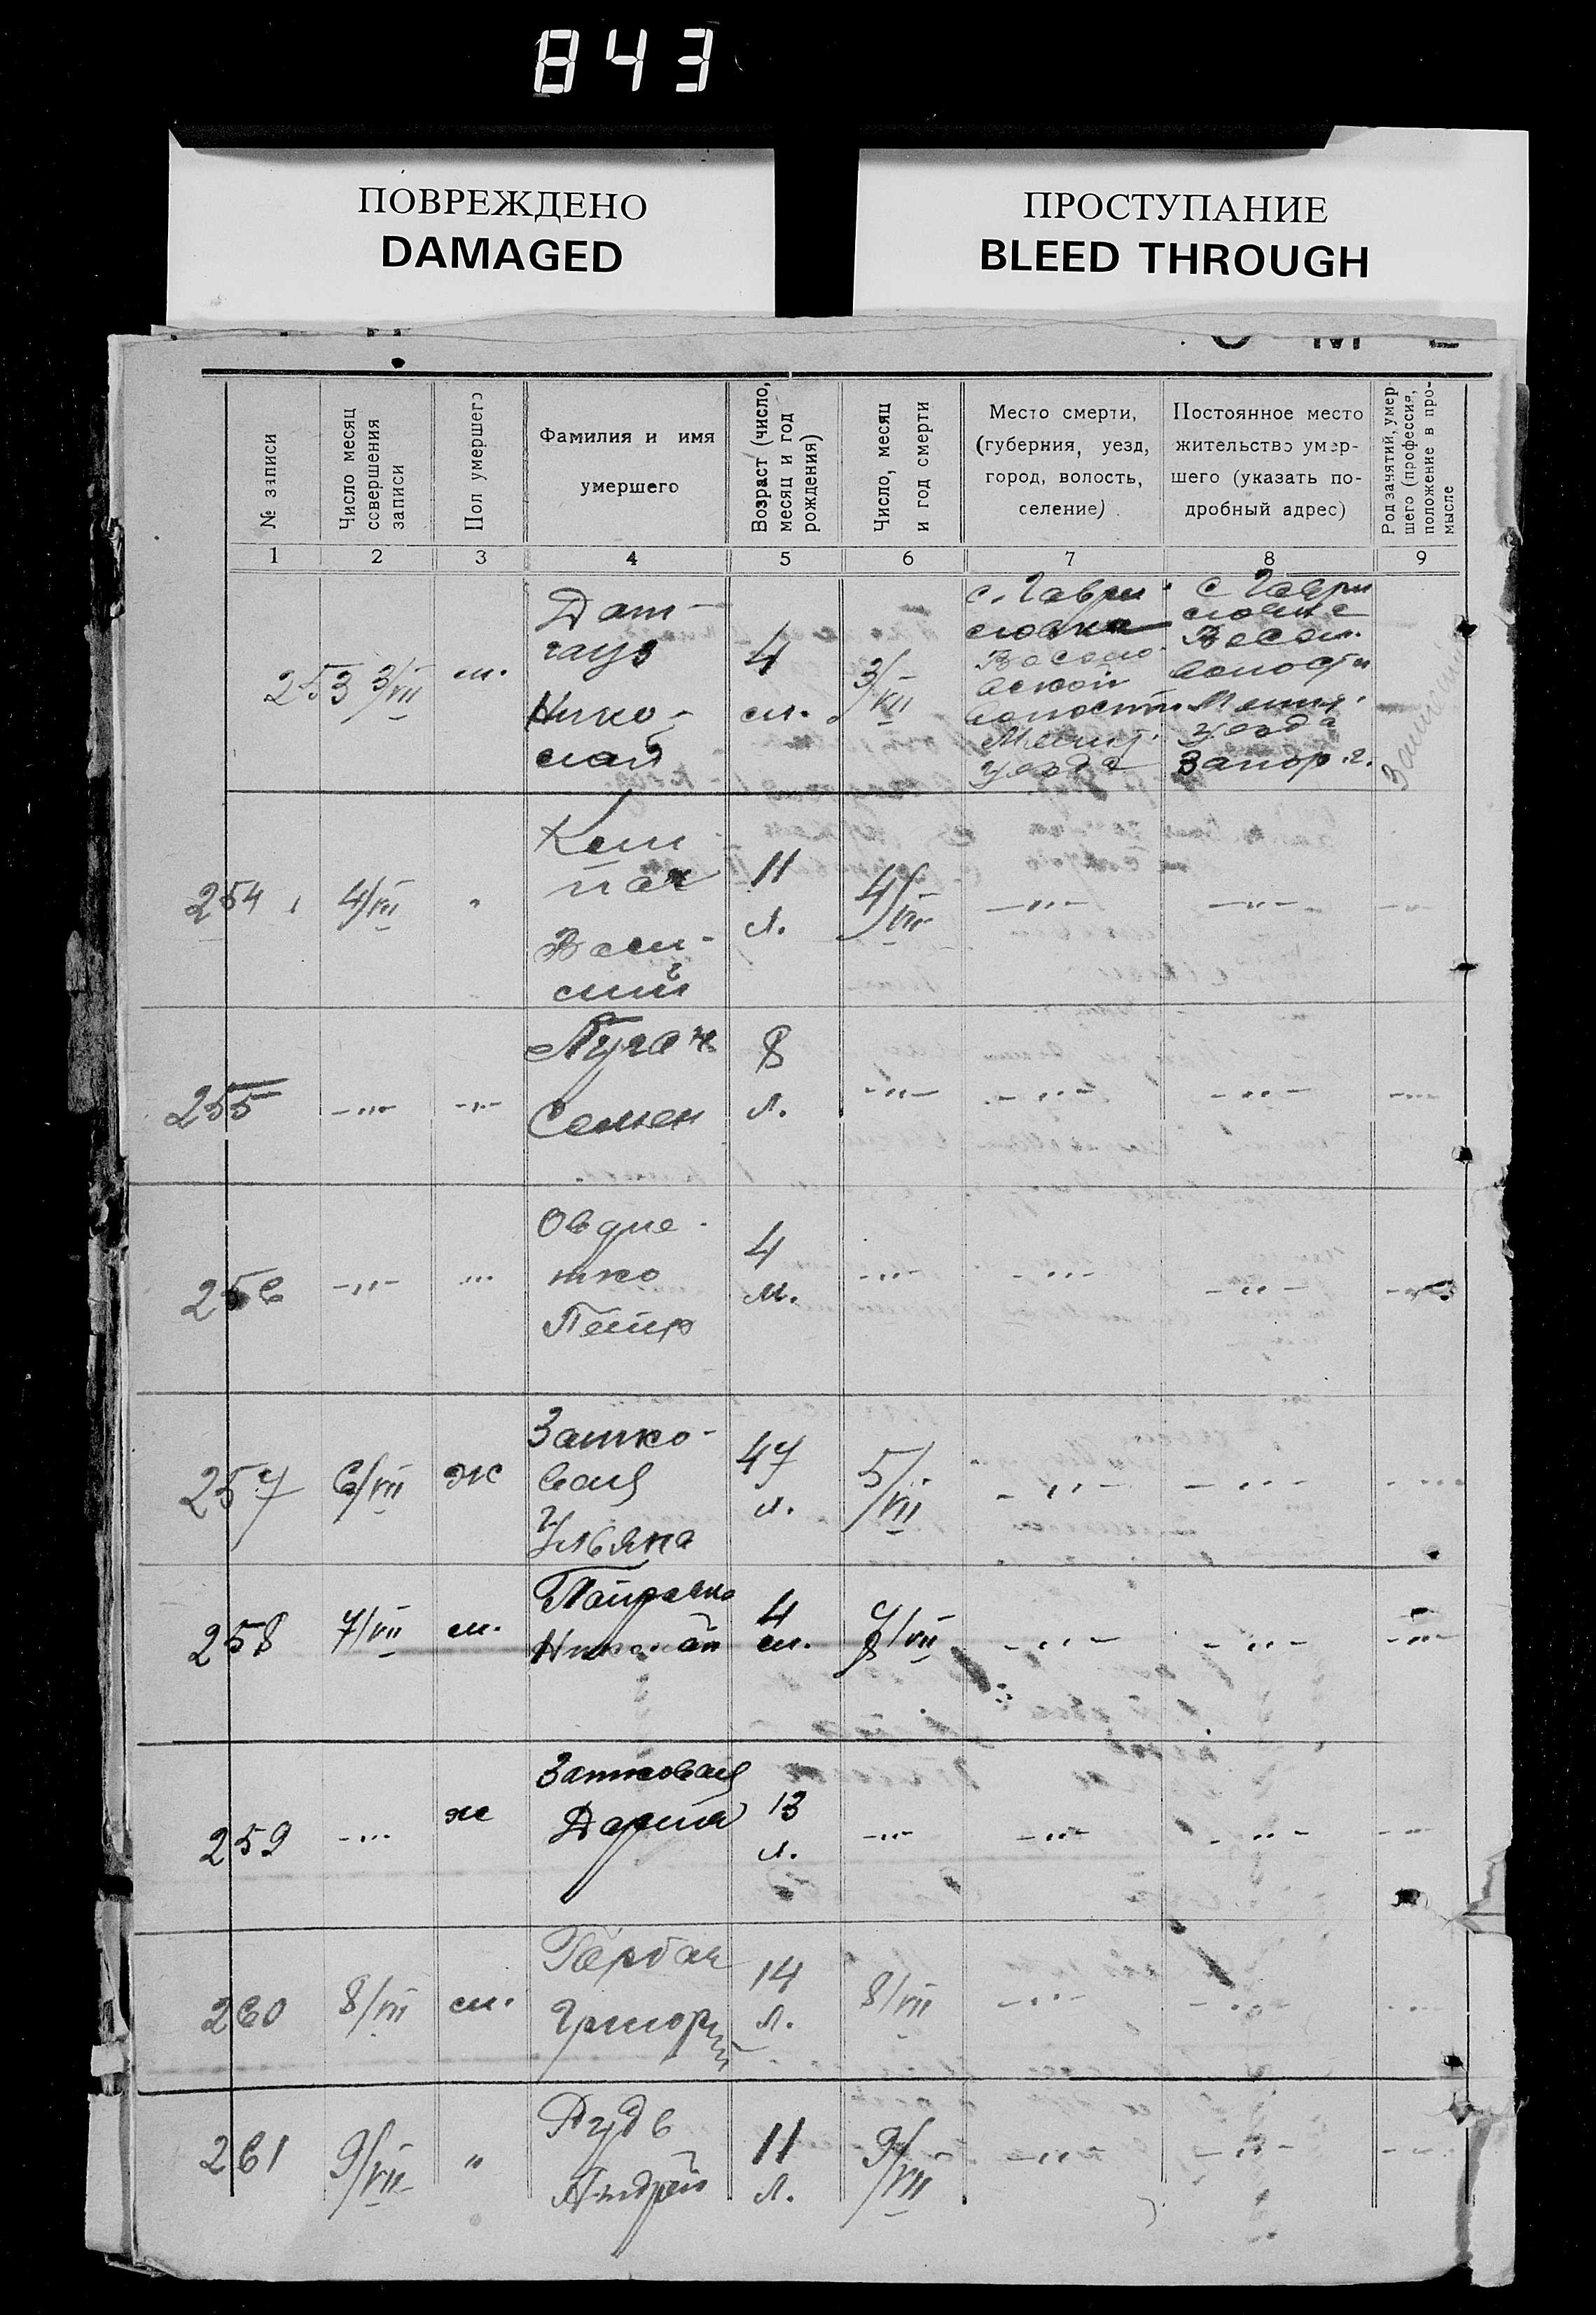 843
ПОВРЕЖДЕНО
DAMAGED
ПРОСТУПАНИЕ
BLEED THROUGH
№ записи
Число месяц совершения записи
Пол умершего
Фамилия и имя умершего
Возраст (число, месяц и год рождения)
Число, месяц и год смерти
Место смерти, (губерния, уезд, город, волость, селение)
Постоянное место жительство умершего (указать подробный адрес)
Род занятий, умершего (профессия, положение в промысле
1 2 3 4 5 6 7 8 9
253 3/VII м. Николай 4 м. 3/VII с. Гавриловка волости Мелит. уезда с Гаври волости уезда Запор. г.
254 4/VII " Василий 11 л. 4/VII -"- -"- -"-
255 -"- -"- Пугач Семен 8 л. -"- -"- -"- -"-
256 -"- -"- Овдиенко Петр 4 м. -"- -"- -"- -"-
257 6/VII ж Затковая Ульяна 47 л. 5/VII -"- -"- -"-
258 7/VII м. Николай 4 м. 7/VII -"- -"- -"-
259 -"- ж Затковая Дария 13 л. -"- -"- -"- -"-
260 8/VII м. Горбач Григорий 14 л. 8/VII -"- -"- -"-
261 9/VII " Рудь Андрей 11 л. 9/VII -"- -"- -"-